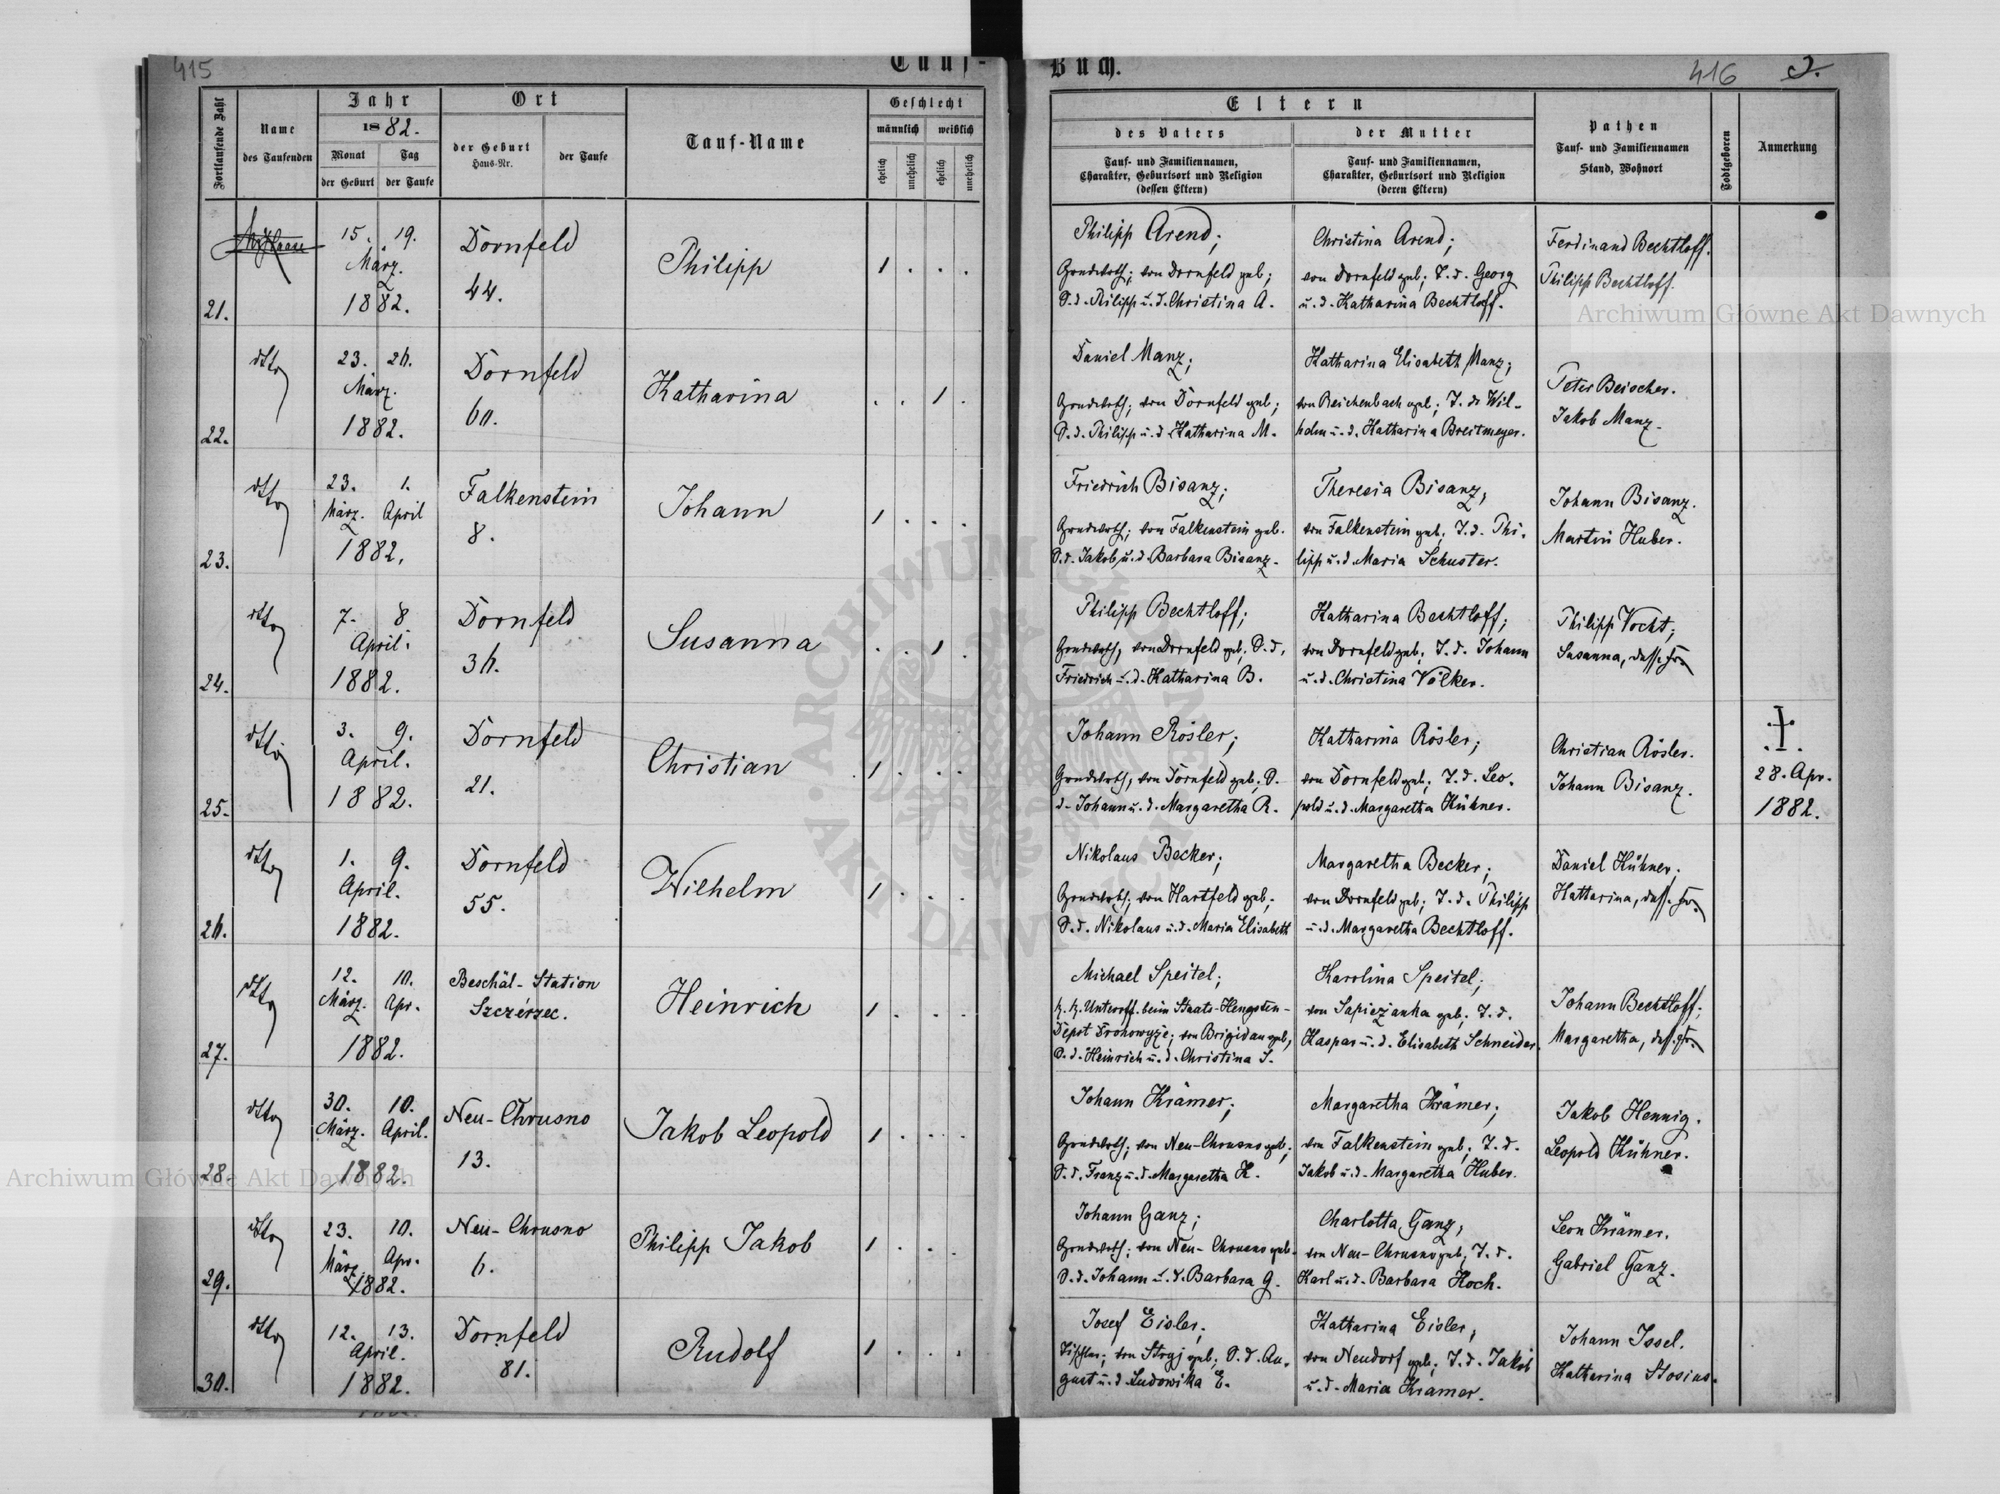 415
Tauf-
Fortlaufende Zahl
Name
des Taufenden
Jahr
1882.
Monat
Tag
der Geburt
der Taufe
Ort
der Geburt
Haus-Nr.
der Taufe
Tauf-Name
Geschlecht
männlich
weiblich
ehelich
unehelich
ehelich
unehelich
21.
15. 19.
März.
1882.
Dornfeld
44.
Philipp
1 . . .
22.
dtto
23. 26.
März.
1882.
Dornfeld
60.
Katharina
. . 1 .
23.
dtto
23. 1.
März. April
1882.
Falkenstein
8.
Johann
1 . . .
24.
dtto
7. 8
April.
1882.
Dornfeld
36.
Susanna
. . 1 .
25.
dtto
3. 9.
April.
1882.
Dornfeld
21.
Christian
1 . . .
26.
dtto
1. 9.
April.
1882.
Dornfeld
55.
Wilhelm
1 . . .
27.
dtto
12. 10.
März. Apr.
1882.
Beschäl-Station
Szczérzec.
Heinrich
1 . . .
28.
dtto
30. 10.
März. April.
1882.
Neu-Chrusno
13.
Jakob Leopold
1 . . .
29.
dtto
23. 10.
März. Apr.
1882.
Neu-Chrusno
6.
Philipp Jakob
1 . . .
30.
dtto
12. 13.
April.
1882.
Dornfeld
81.
Rudolf
1 . . .
Buch.
416
3.
Eltern
des Vaters
Tauf- und Familiennamen,
Charakter, Geburtsort und Religion
(dessen Eltern)
der Mutter
Tauf- und Familiennamen,
Charakter, Geburtsort und Religion
(deren Eltern)
Pathen
Tauf- und Familiennamen
Stand, Wohnort
Todtgeboren
Anmerkung
Philipp Arend;
Grundwrth; von Dornfeld geb;
S. d. Philipp u. d. Christina A.
Christina Arend;
von Dornfeld geb; T. d. Georg
u. d. Katharina Bechtloff.
Ferdinand Bechtloff.
Philipp Bechtloff.
Daniel Manz;
Grundwrth; von Dornfeld geb;
S. d. Philipp u. d. Katharina M.
Katharina Elisabeth Manz;
von Reichenbach geb; T. d. Wil-
helm u. d. Katharina Breitmeyer.
Peter Beischer.
Jakob Manz.
Friedrich Bisanz;
Grundwrth; von Falkenstein geb.
S. d. Jakob u. d. Barbara Bisanz.
Theresia Bisanz,
von Falkenstein geb; T. d. Phi-
lipp u. d. Maria Schuster.
Johann Bisanz.
Martin Huber.
Philipp Bechtloff;
Grundwrth, von Dornfeld geb; S. d.
Friedrich u. d. Katharina B.
Katharina Bechtloff;
von Dornfeld geb; T. d. Johann
u. d. Christina Völker.
Philipp Vocht;
Susanna, dess. Fr.
Johann Rösler;
Grundwrth, von Dornfeld geb; S.
d. Johann u. d. Margaretha R.
Katharina Rösler;
von Dornfeld geb; T. d. Leo-
pold u. d. Margaretha Kühner.
Christian Rösler.
Johann Bisanz.
28. Apr.
1882.
Nikolaus Becker;
Grundwrth; von Hartfeld geb;
S. d. Nikolaus u. d. Maria Elisabeth
Margaretha Becker;
von Dornfeld geb; T. d. Philipp
u. d. Margaretha Bechtloff.
Daniel Kühner;
Katharina, dess. Fr.
Michael Speitel;
k. k. Unteroff. beim Staats-Hengsten-
Depot Drohowyże; von Brigidau geb,
S. d. Heinrich u. d. Christina S.
Karolina Speitel;
von Sapieżanka geb; T. d.
Kaspar u. d. Elisabeth Schneider.
Johann Bechtloff;
Margaretha, dess. Fr.
Johann Krämer;
Grundwrth; von Neu-Chrusno geb;
S. d. Franz u. d. Margaretha K.
Margaretha Krämer;
von Falkenstein geb; T. d.
Jakob u. d. Margaretha Huber.
Jakob Hennig.
Leopold Kühner.
Johann Ganz;
Grundwrth; von Neu-Chrusno geb.
S. d. Johann u. d. Barbara G.
Charlotta Ganz,
von Neu-Chrusno geb; T. d.
Karl u. d. Barbara Hoch.
Leon Krämer.
Gabriel Ganz.
Josef Eisler,
Tischler; von Stryj geb; S. d. Au-
gust u. d. Ludowika E.
Katharina Eisler,
von Neudorf geb; T. d. Jakob
u. d. Maria Kramer.
Johann Issel.
Katharina Stosius.
Archiwum Główne Akt Dawnych
Archiwum Główne Akt Dawnych